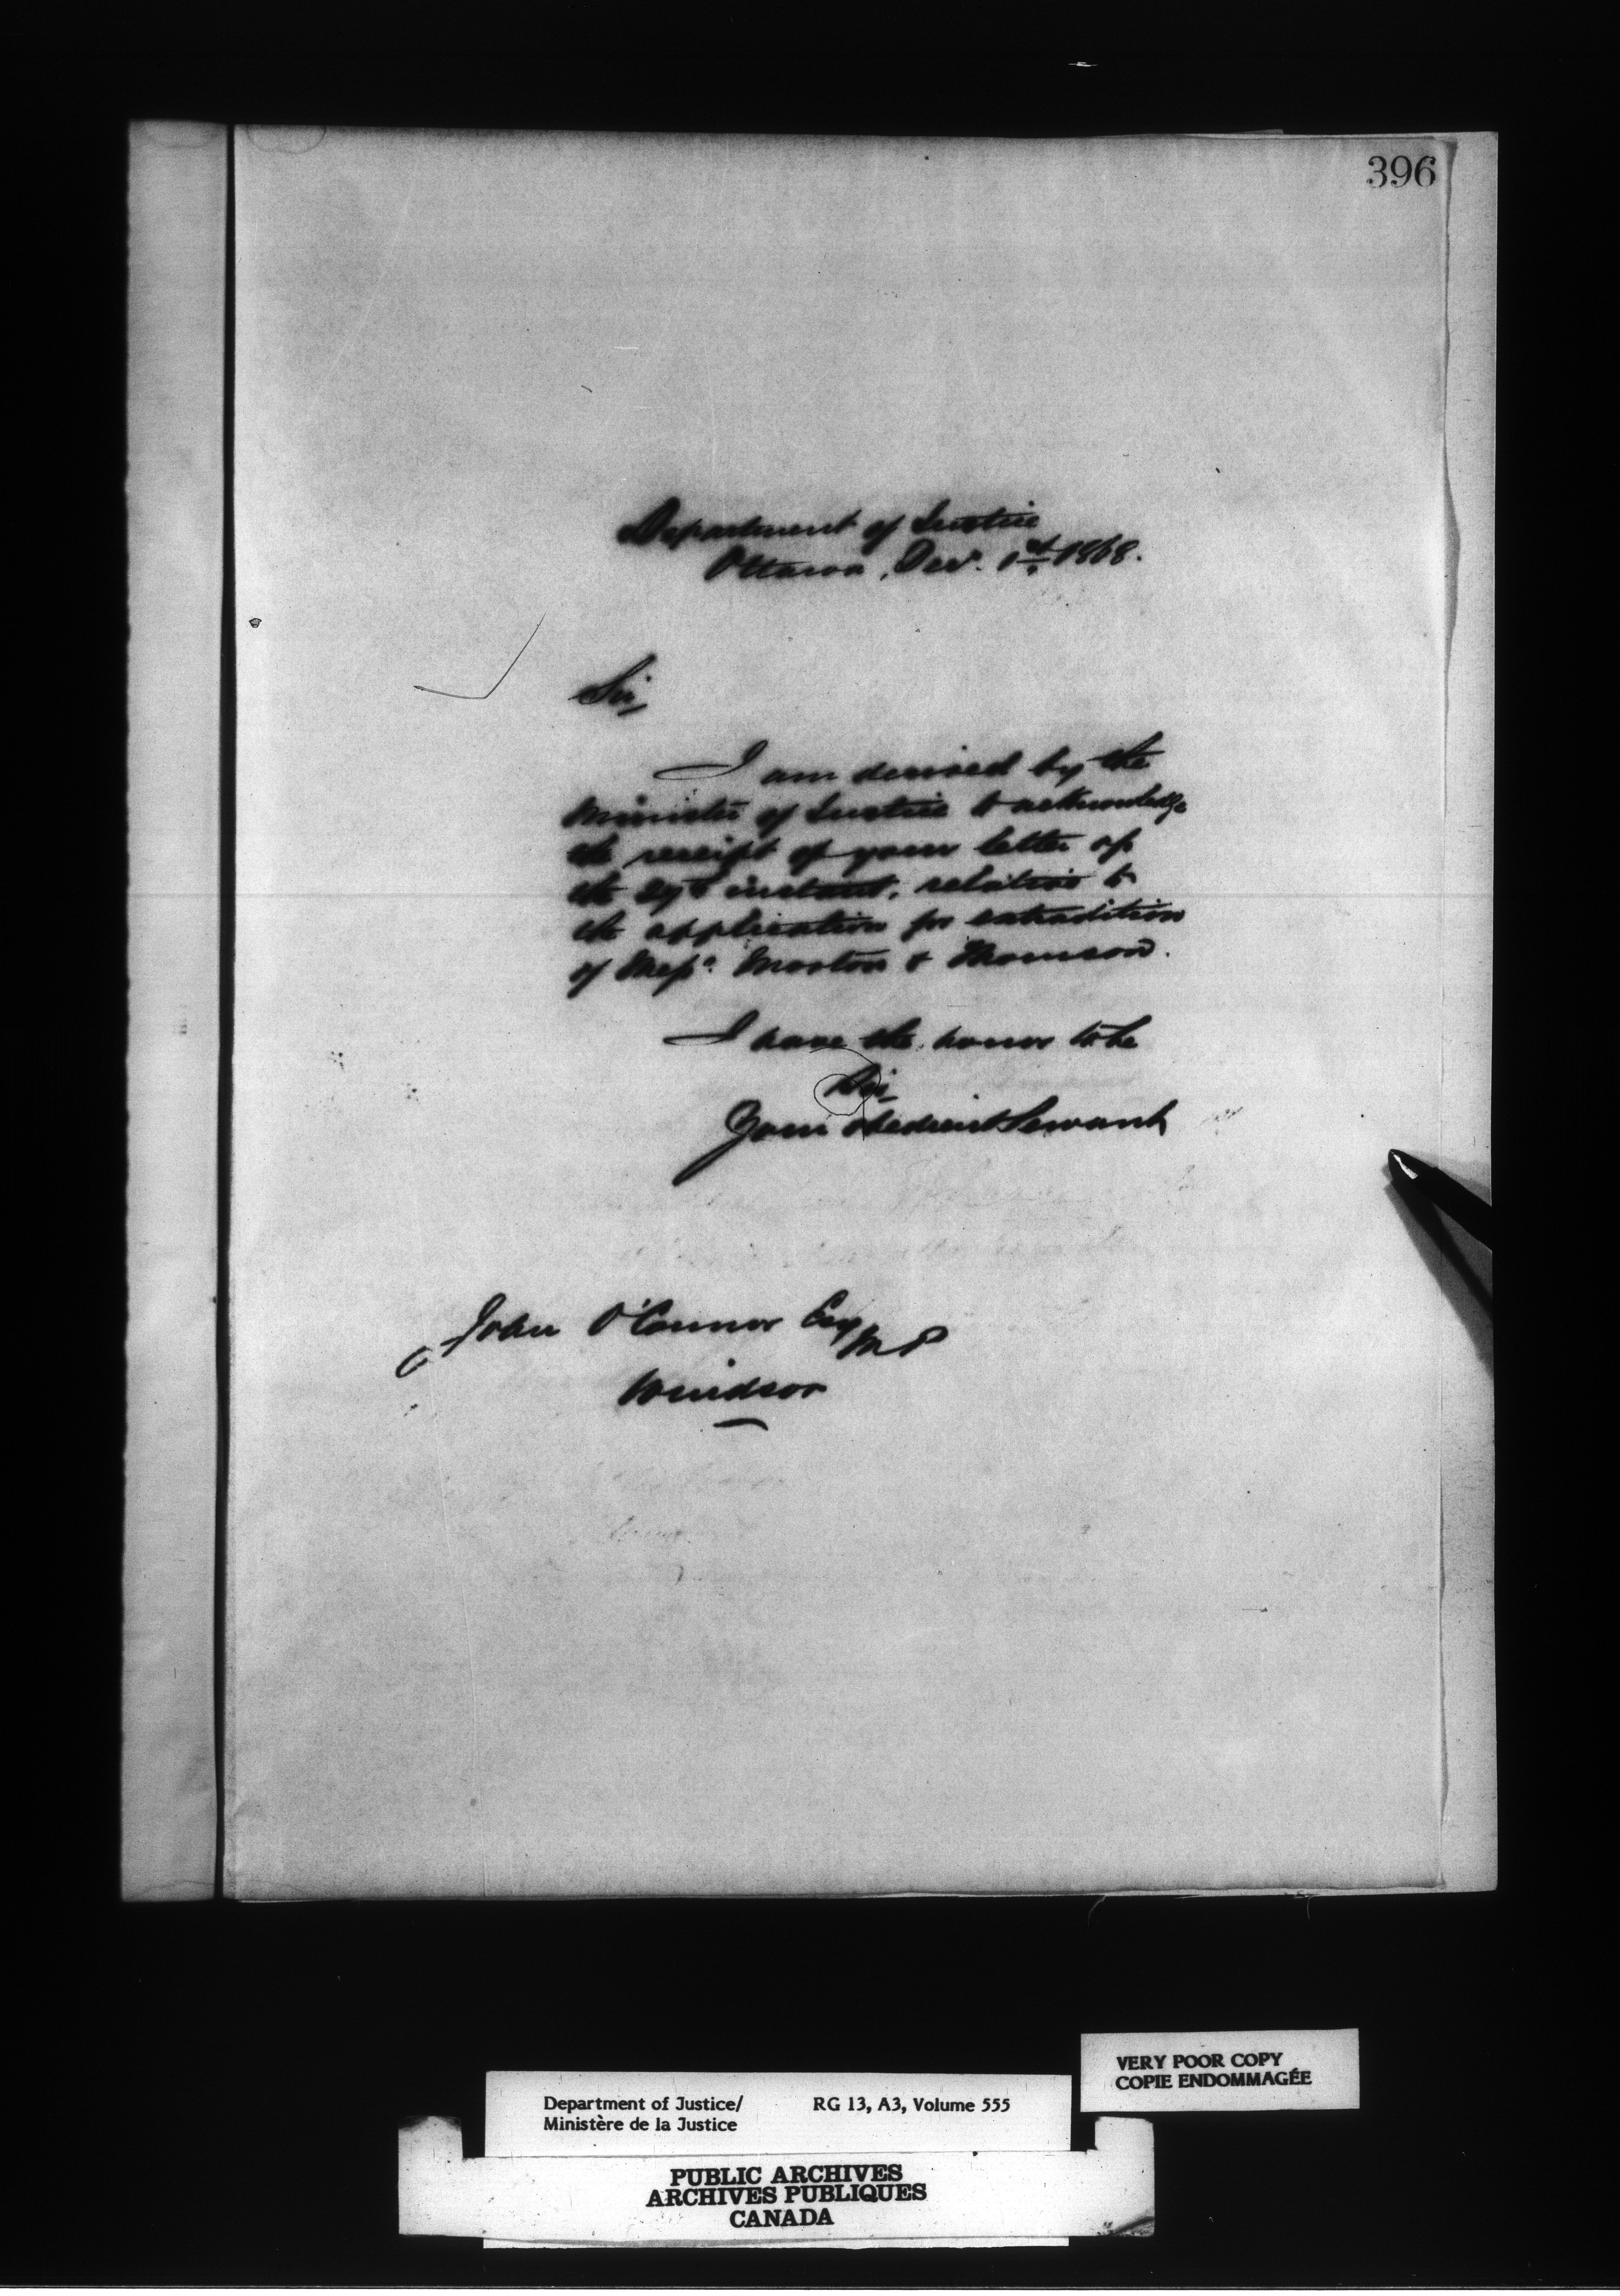 396
Department of Justice
Ottawa, Decr. 1st 1868.
Sir,
I am desired by the
Minister of Justice to acknowledge
the receipt of your letter of
the 29th instant, relative to
the application for extradition
of Messrs. Morton & Thomson.
I have the honor to be
Sir,
Your obedient Servant
John O'Connor Esq
M P
Windsor
VERY POOR COPY
COPIE ENDOMMAGÉE
Department of Justice/ RG 13, A3, Volume 555
Ministère de la Justice
PUBLIC ARCHIVES
ARCHIVES PUBLIQUES
CANADA